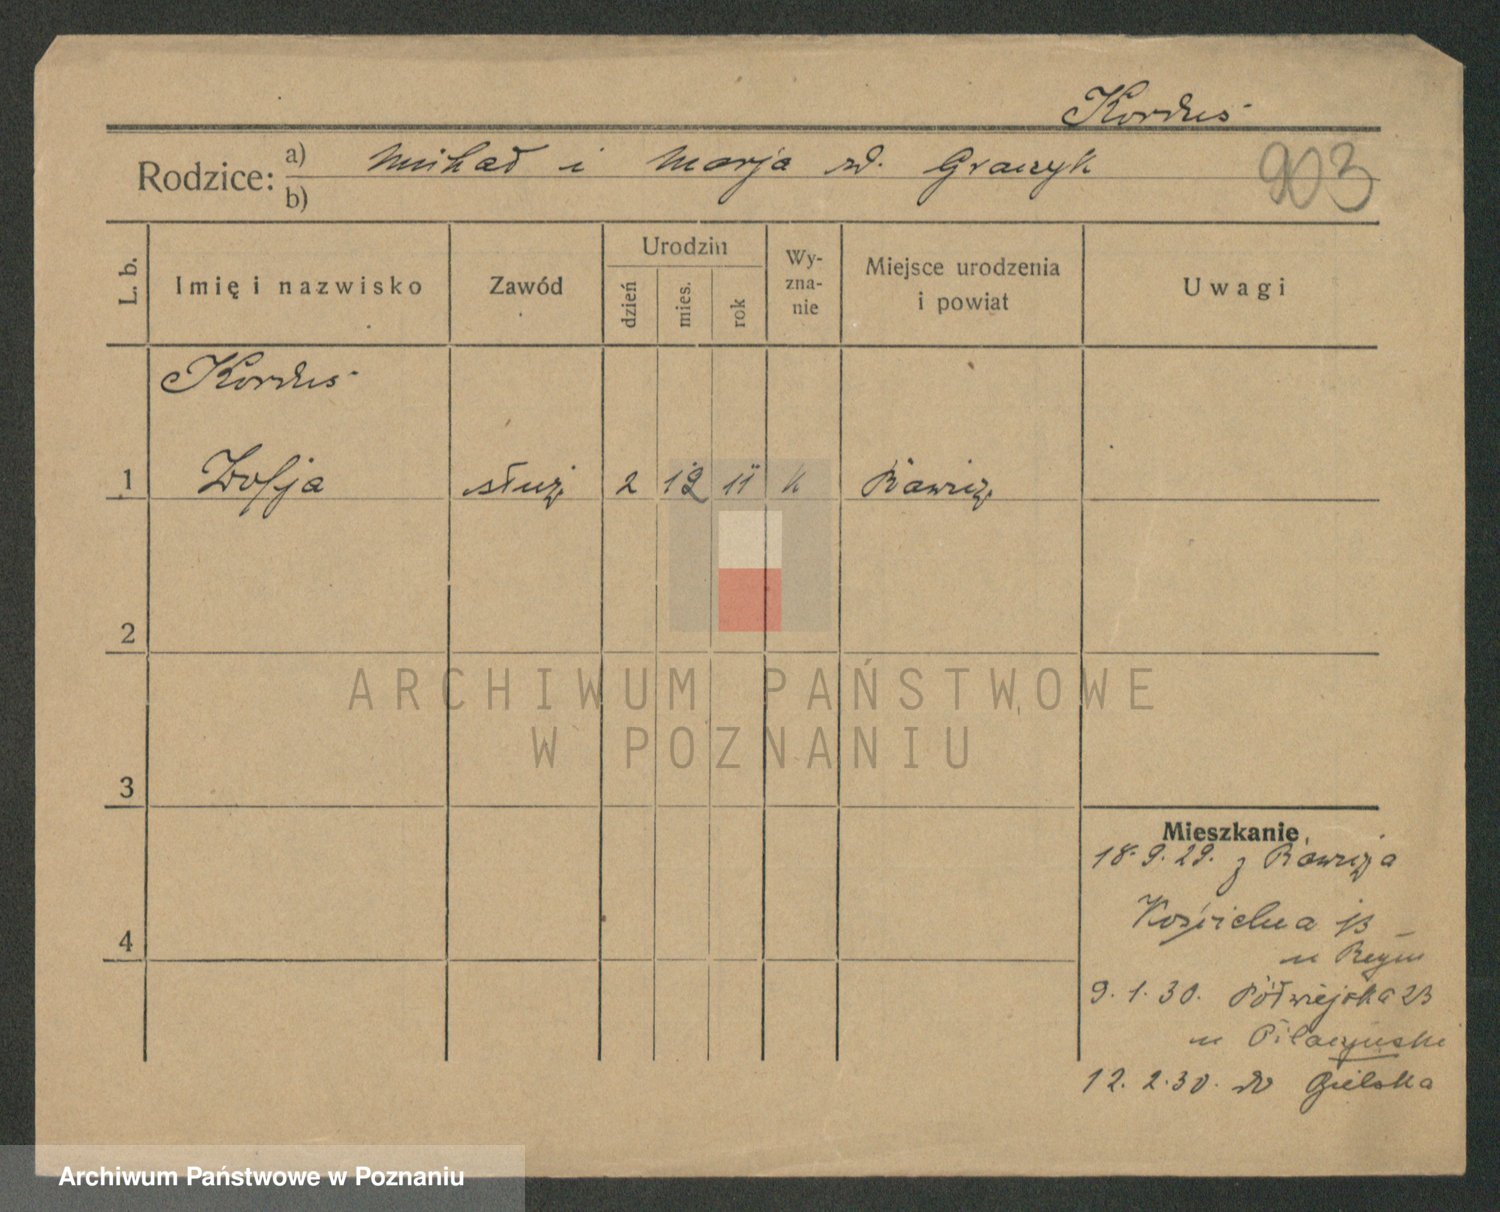 Kordus
Rodzice: a) Michał i Marja zd. Graczyk
b)
903
L. b.
Imię i nazwisko
Zawód
Urodzin
dzień
mies.
rok
Wy-
zna-
nie
Miejsce urodzenia
i powiat
Uwagi
Kordus
1 Zofja służ. 2 12 11 k Rawicz
2
3
4
Mieszkanie
18. 9. 29. z Rawicza
Kościelna
u
9. 1. 30. Półwiejska 23
u Pilaczyński
12. 2. 30. do
ARCHIWUM PAŃSTWOWE
W POZNANIU
Archiwum Państwowe w Poznaniu